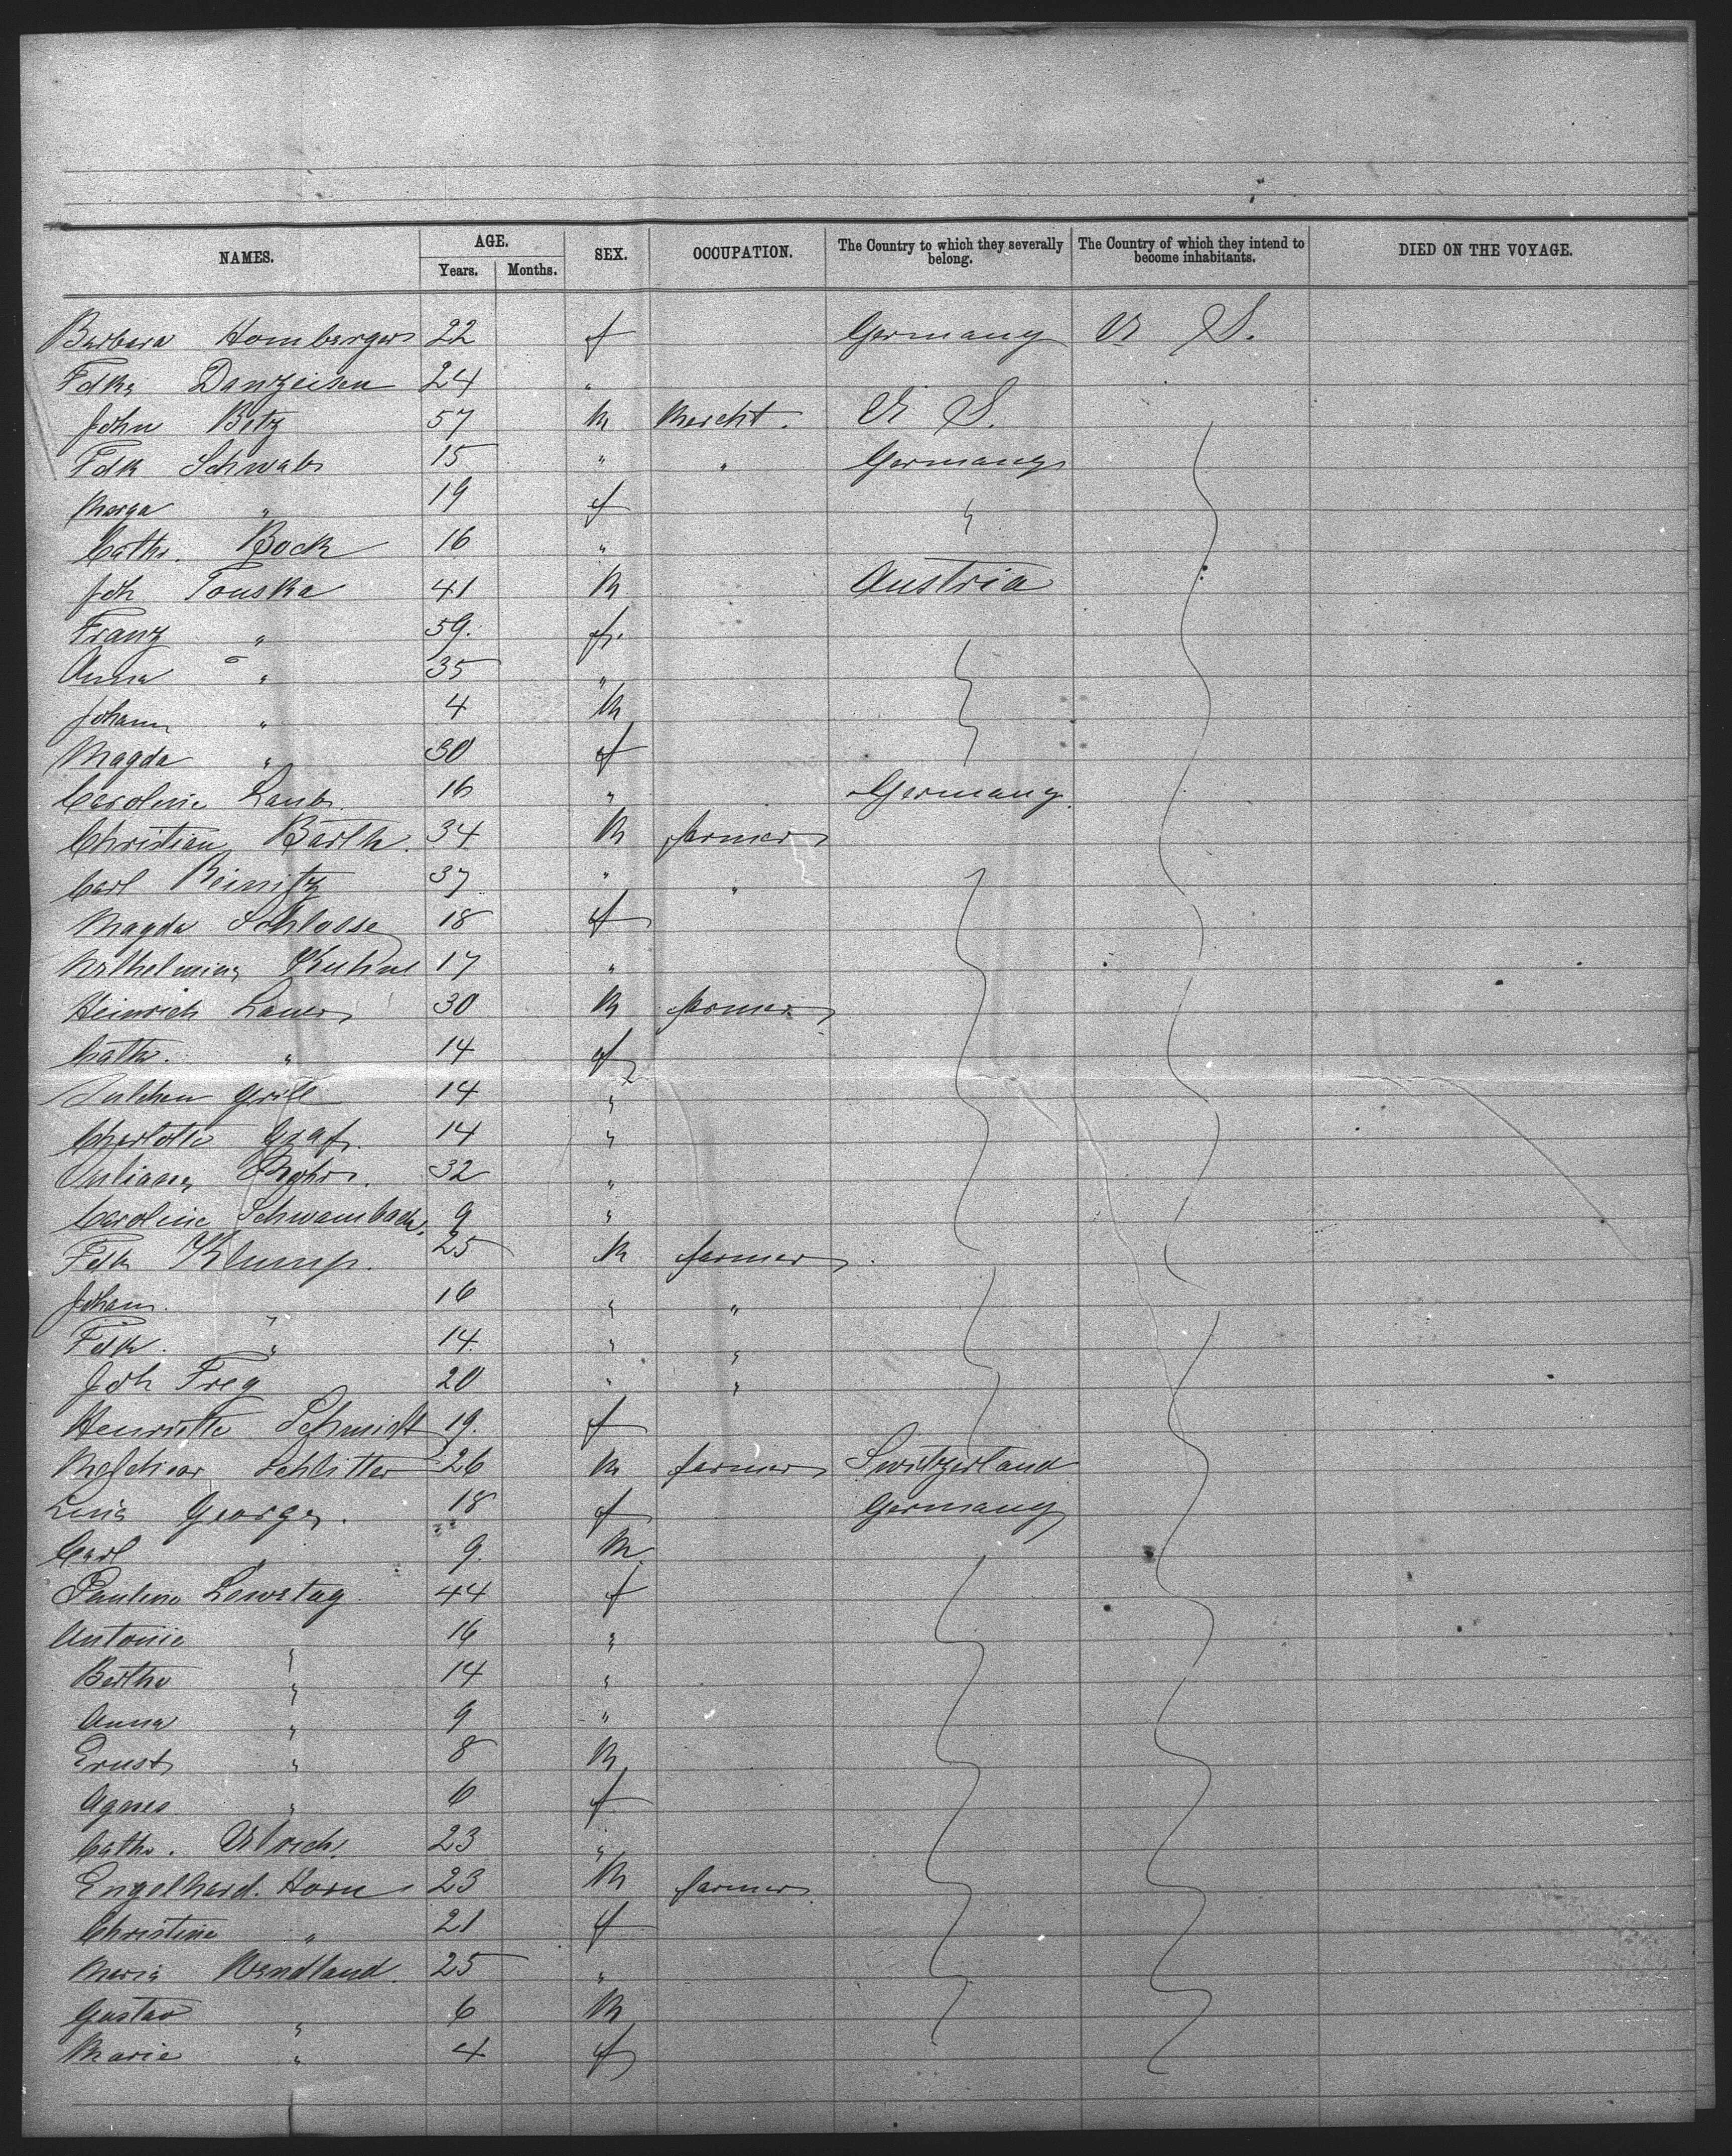 NAMES. AGE. SEX. OCCUPATION. The Country to which they severally belong. The Country of which they intend to become inhabitants. DIED ON THE VOYAGE.
Years. Months.
Barbara Homberger 22 f Germany U S.
Fdke Danzeisen 24 "
John Betz 57 M Mercht. U S.
Fdk Schwab 15 " " Germany
Marga " 19 f "
Cath. Bock 16 "
Joh Touska 41 M Austria
Franz " 59. f.
Anna " 35 "
Johann " 4 M
Magda " 30 f
Caroline Laub 16 " Germany
Christian Barth. 34 M farmer
Carl Reinitz 37 " "
Magda Schlosse 18 f
Wilhelmina Kuhne 17 "
Heinrich Lauer 30 M farmer
Cath. " 14 f
Julchen Grill 14 "
Charlotte Graf. 14 "
Juliane 32 "
Caroline Schwambach. 9 "
Fdk Klump. 25 M farmer
Johann. " 16 " "
Fdk. " 14. " "
Joh Frey 20 " "
Henriette Schmidt 19. f
Melchior Schlitter 26 M farmer Switzerland
Lina George. 18 f Germany
Carl " 9. M.
Pauline Lowetag 44 f
Antonie " 16 "
Bertha " 14 "
Anna " 9 "
Ernst " 8 M
Agnes " 6 f
Cath. Ulrich. 23 "
Engelhard. Horn 23 M farmer.
Christine " 21 f
Maria Wendland. 25 "
Gustav " 6 M
Marie " 4 f